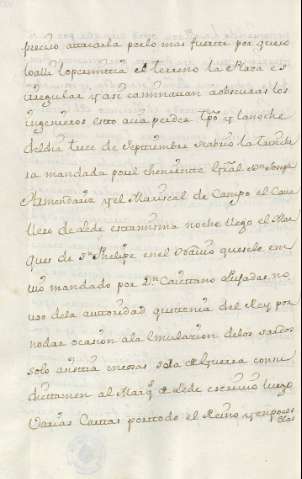 preciso atacarla por lo mas fuerte por q.e no
lo permitia el terreno la Plaza es
irregular y asi caminavan a obscuras los
ingenieros esto avia perder tpō y la noche
del dia trece de Septiembre se abrio la trinche
ra mandada por el theniente Gral Dn Joseph
Armendariz y el Mariscal de Campo el Cava
llero de Lede esta misma noche llego el Mar
ques de Sn Phelipe en el navio que se le em
vio mandado por Dn Cayettano Pujadas no
uso de la autoridad que tenia del Rey por
no dar ocasion a la emulacion de los sardos
solo assistia en essas sala de Guerra con su
dictamen al Marqs de Lede escrivio luego
varias Cartas por todo el Reino y en pocos
dias